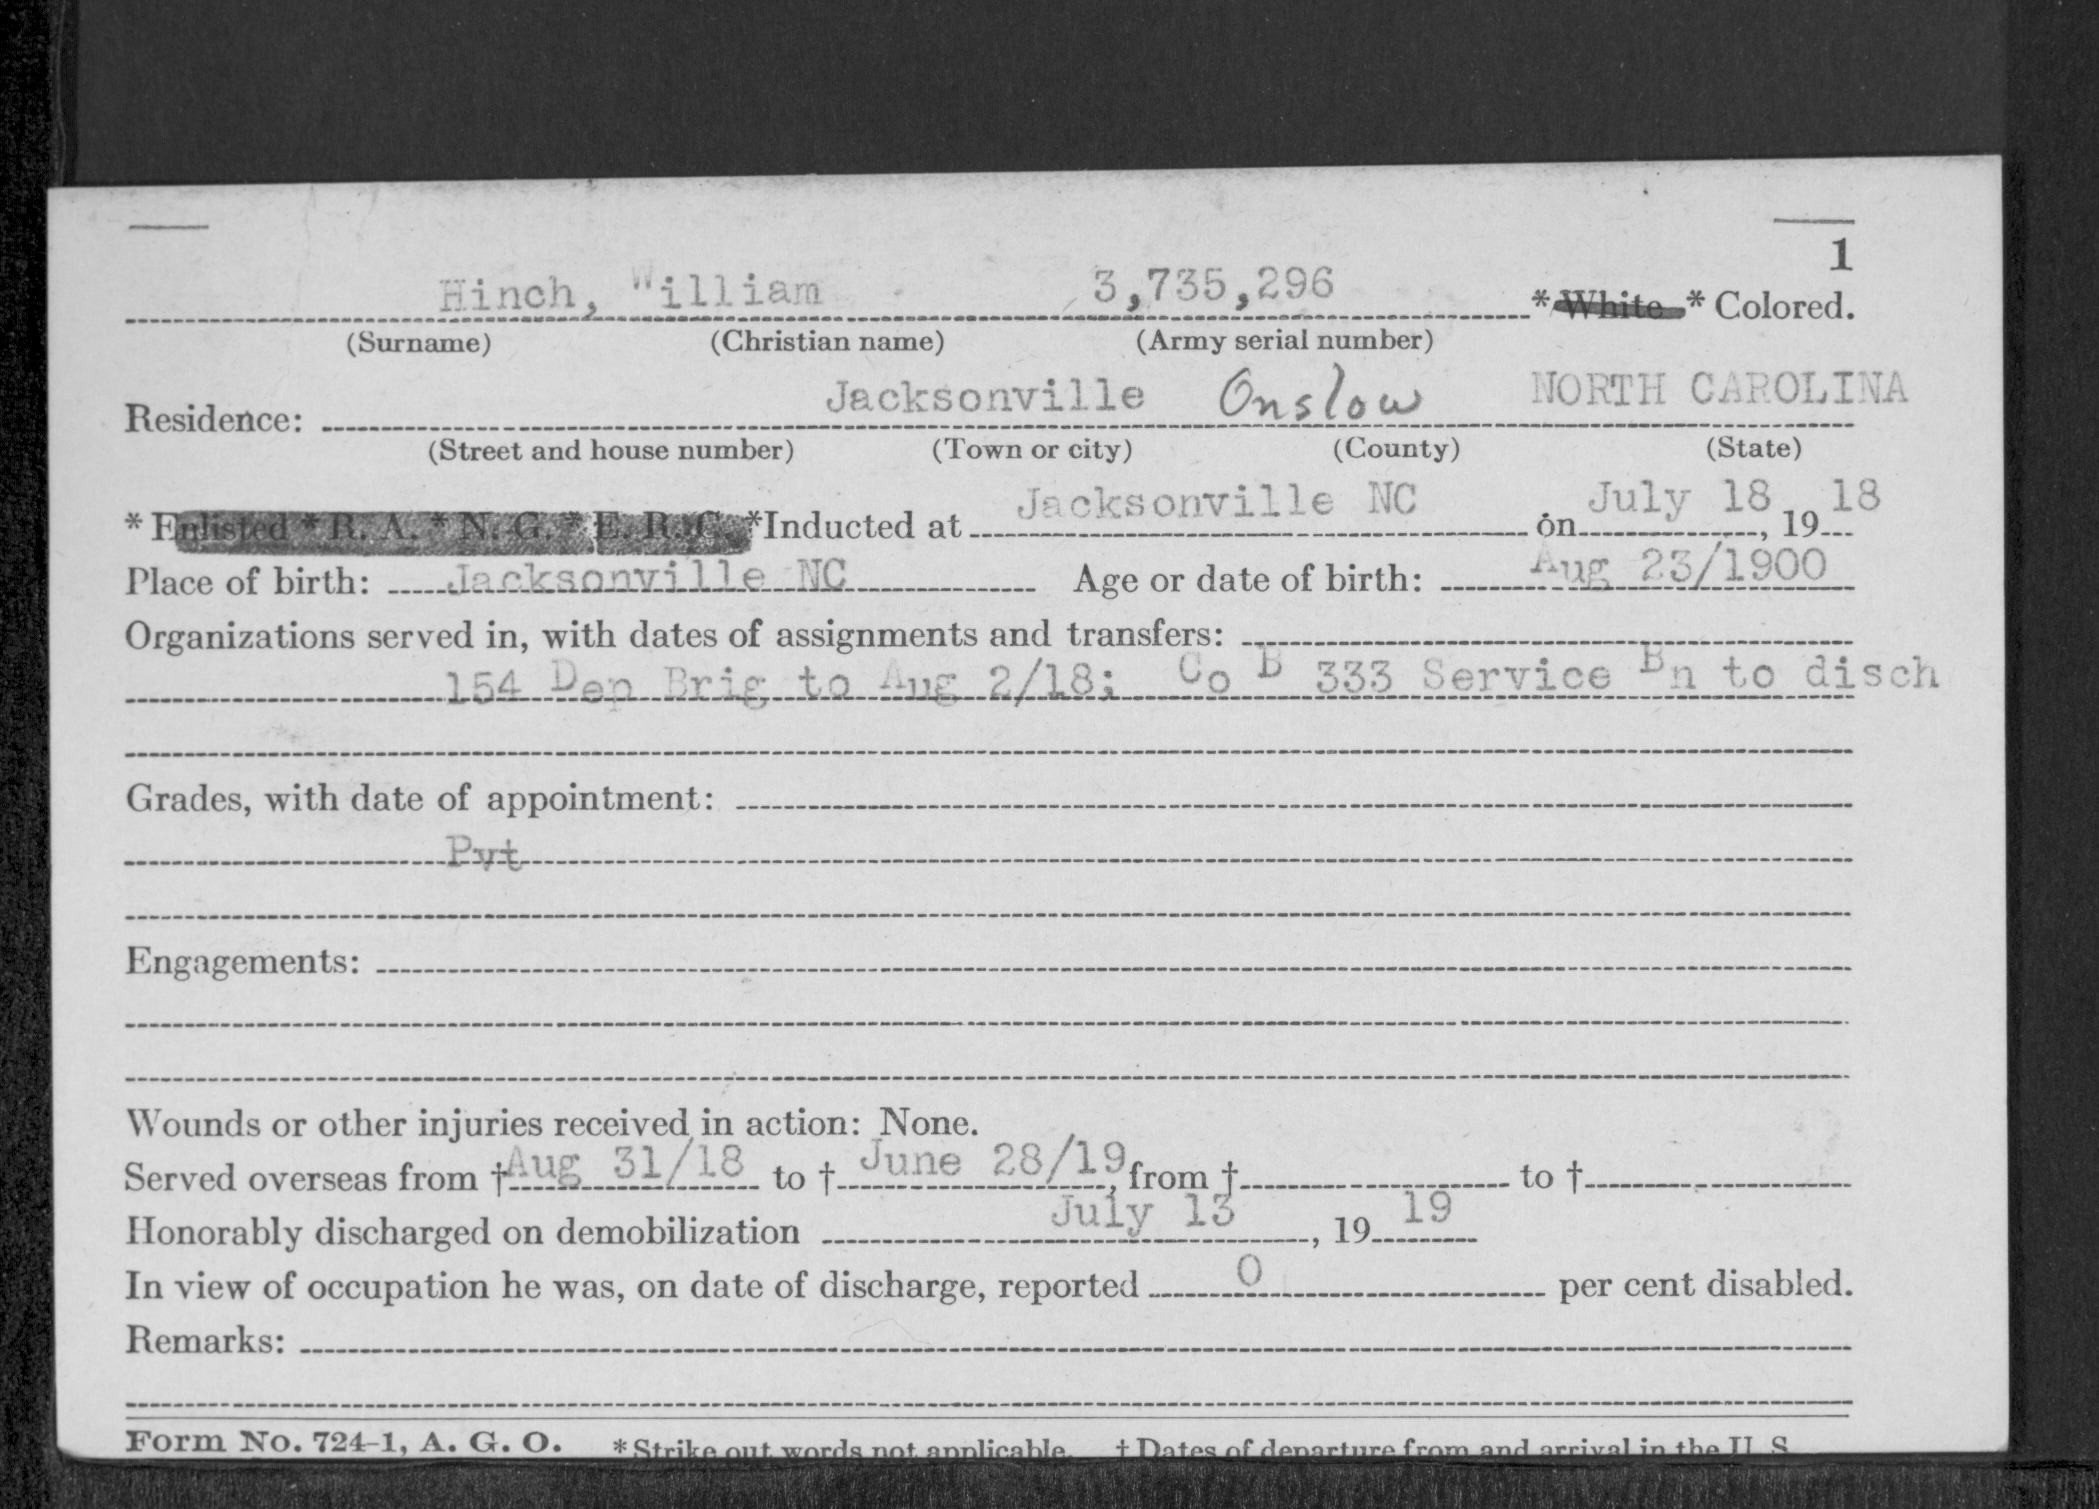 1
Hinch, William 3,735,296 * White * Colored.
(Surname) (Christian name) (Army serial number)
Residence: Jacksonville Onslow NORTH CAROLINA
(Street and house number) (Town or city) (County) (State)
* Enlisted * R. A. * N. G. * E. R. C. *Inducted at Jacksonville NC on July 18, 19 18
Place of birth: Jacksonville NC Age or date of birth: Aug 23/1900
Organizations served in, with dates of assignments and transfers:
154 Dep Brig to Aug 2/18; Co B 333 Service Bn to disch
Grades, with date of appointment:
Pvt
Engagements:
Wounds or other injuries received in action: None.
Served overseas from † Aug 31/18 to † June 28/19, from † to †
Honorably discharged on demobilization July 13, 19 19
In view of occupation he was, on date of discharge, reported 0 per cent disabled.
Remarks:
Form No. 724-1, A. G. O. * Strike out words not applicable. † Dates of departure from and arrival in the U. S.